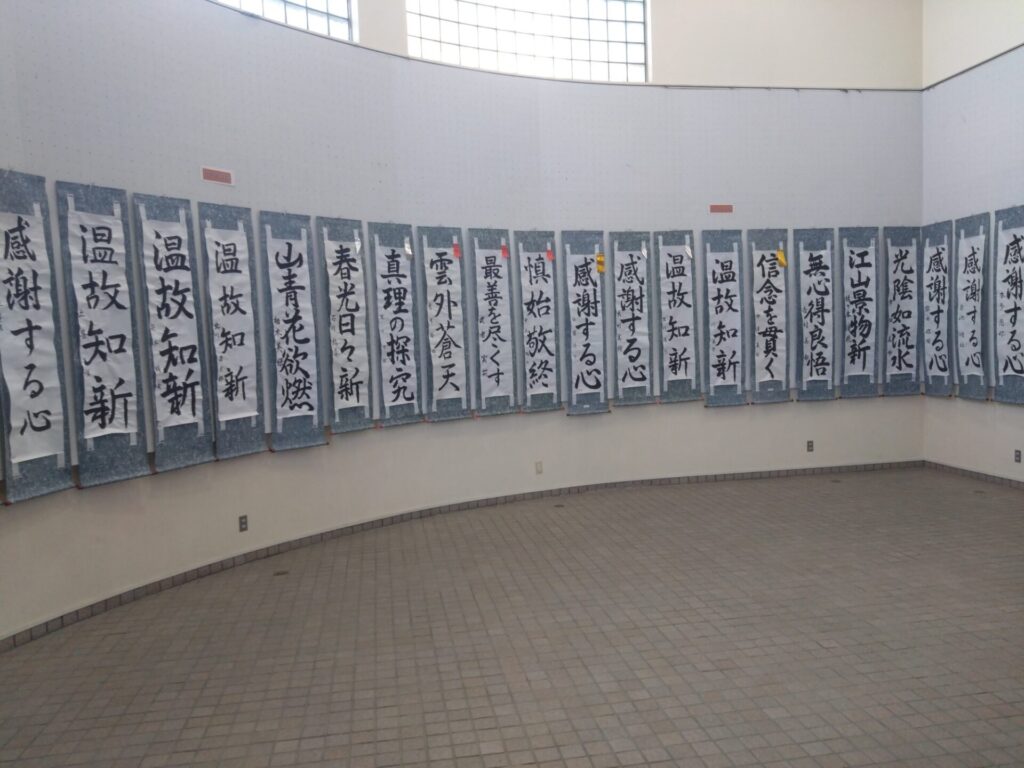 感謝する心
温故知新
温故知新
温故知新
山青花欲燃
春光日々新
真理の探究
雲外蒼天
最善を尽くす
慎始敬終
感謝する心
感謝する心
温故知新
温故知新
信念を貫く
無心得良悟
江山景物新
光陰如流水
感謝する心
感謝する心
感謝する心